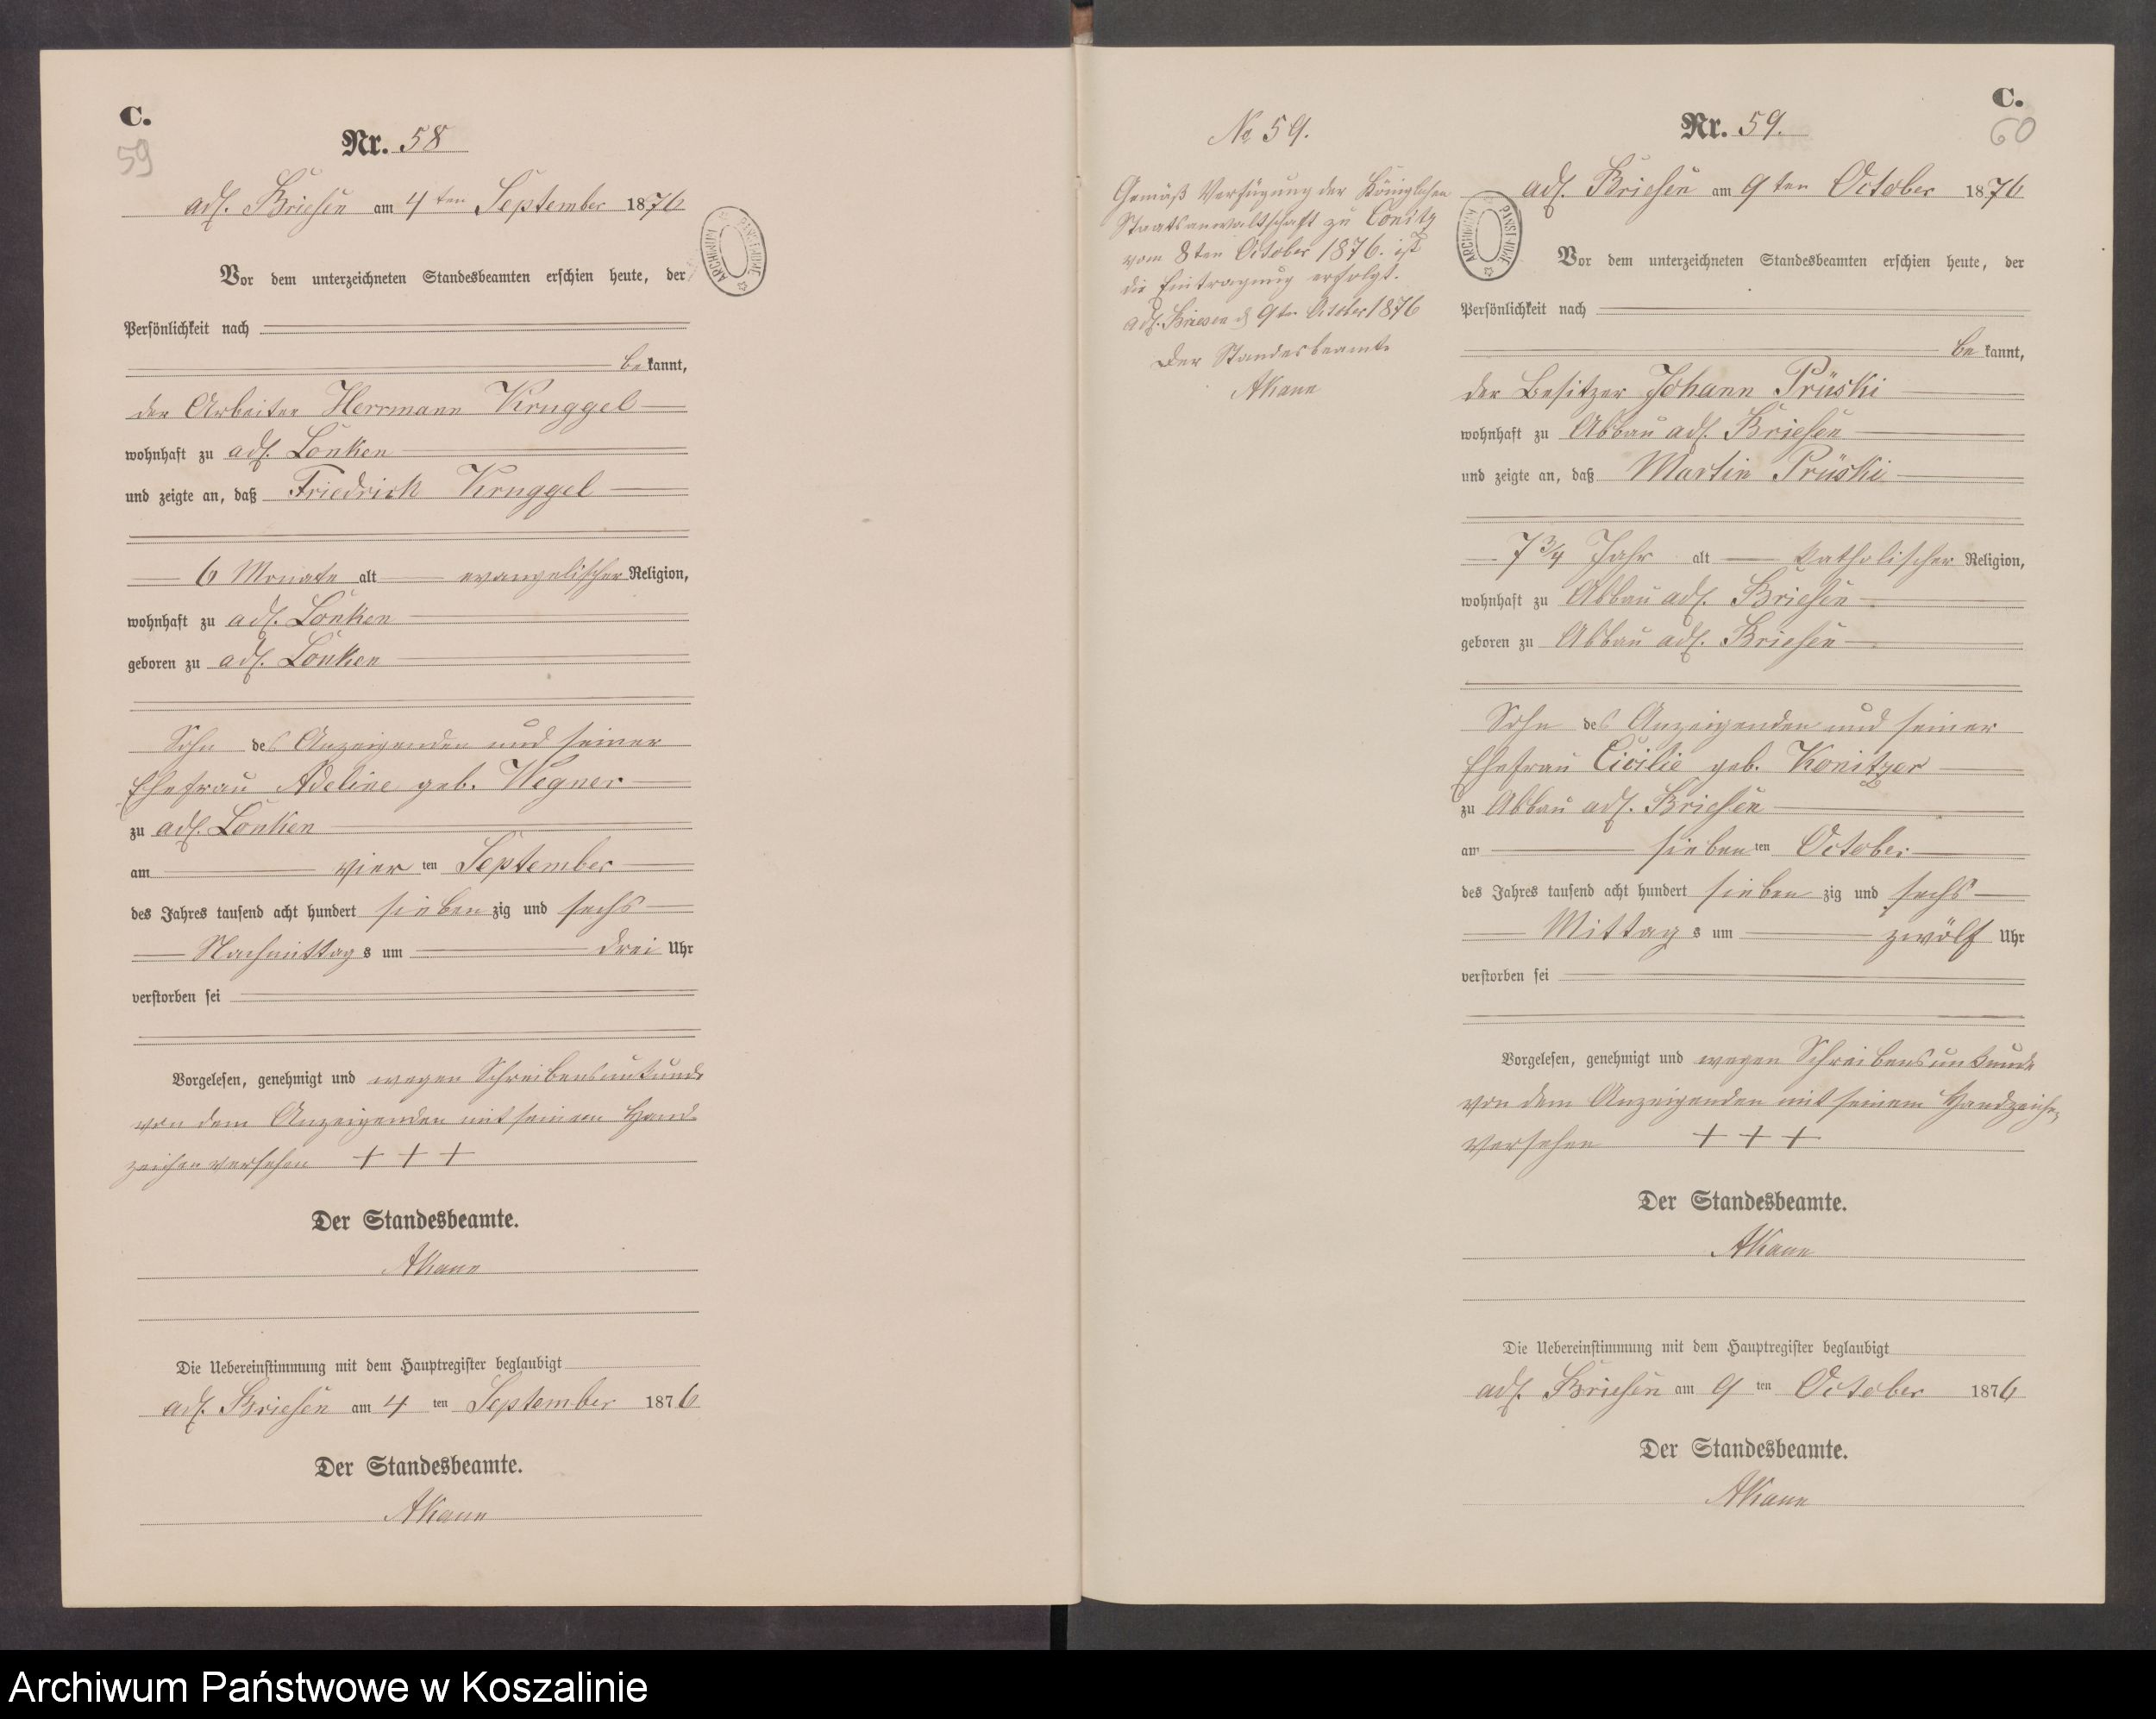 C.
59
Nr. 58
adl. Briesen am 4 ten September 1876
Vor dem unterzeichneten Standesbeamten erschien heute, der
Persönlichkeit nach
bekannt,
der Arbeiter Herrmann Kruggel
wohnhaft zu adl. Lonken
und zeigte an, daß Friedrich Kruggel
6 Monate alt evangelischer Religion,
wohnhaft zu adl. Lonken
geboren zu adl. Lonken
Sohn des Anzeigenden und seiner
Ehefrau Adeline geb. Wegner
zu adl. Lonken
am vier ten September
des Jahres tausend acht hundert sieben zig und sechs
Nachmittags um drei Uhr
verstorben sei
Vorgelesen, genehmigt und wegen Schreibensunkunde
von dem Anzeigenden mit seinem Hand
zeichen versehen + + +
Der Standesbeamte.
AKann
Die Uebereinstimmung mit dem Hauptregister beglaubigt
adl. Briesen am 4 ten September 1876
Der Standesbeamte.
AKann
ARCHIWUM PAŃSTWOWE
No 59.
Gemäß Verfügung der Königlichen
Staatsanwaltschaft zu Conitz
vom 8ten October 1876. ist
die Eintragung erfolgt.
adl. Briesen d 9ten October 1876
Der Standesbeamte
AKann
C.
60
Nr. 59.
adl. Briesen am 9 ten October 1876
ARCHIWUM PAŃSTWOWE
Vor dem unterzeichneten Standesbeamten erschien heute, der
Persönlichkeit nach
bekannt,
der Besitzer Johann Prüski
wohnhaft zu Abbau adl. Briesen
und zeigte an, daß Martin Prüski
7 3/4 Jahr alt katholischer Religion,
wohnhaft zu Abbau adl. Briesen
geboren zu Abbau adl. Briesen
Sohn des Anzeigenden und seiner
Ehefrau Cicilie geb. Konitzer
zu Abbau adl. Briesen
am sieben ten October
des Jahres tausend acht hundert sieben zig und sechs
Mittags um zwölf Uhr
verstorben sei
Vorgelesen, genehmigt und wegen Schreibensunkunde
von dem Anzeigenden mit seinem Handzeichen
versehen + + +
Der Standesbeamte.
AKann
Die Uebereinstimmung mit dem Hauptregister beglaubigt
adl. Briesen am 9 ten October 1876
Der Standesbeamte.
AKann
Archiwum Państwowe w Koszalinie